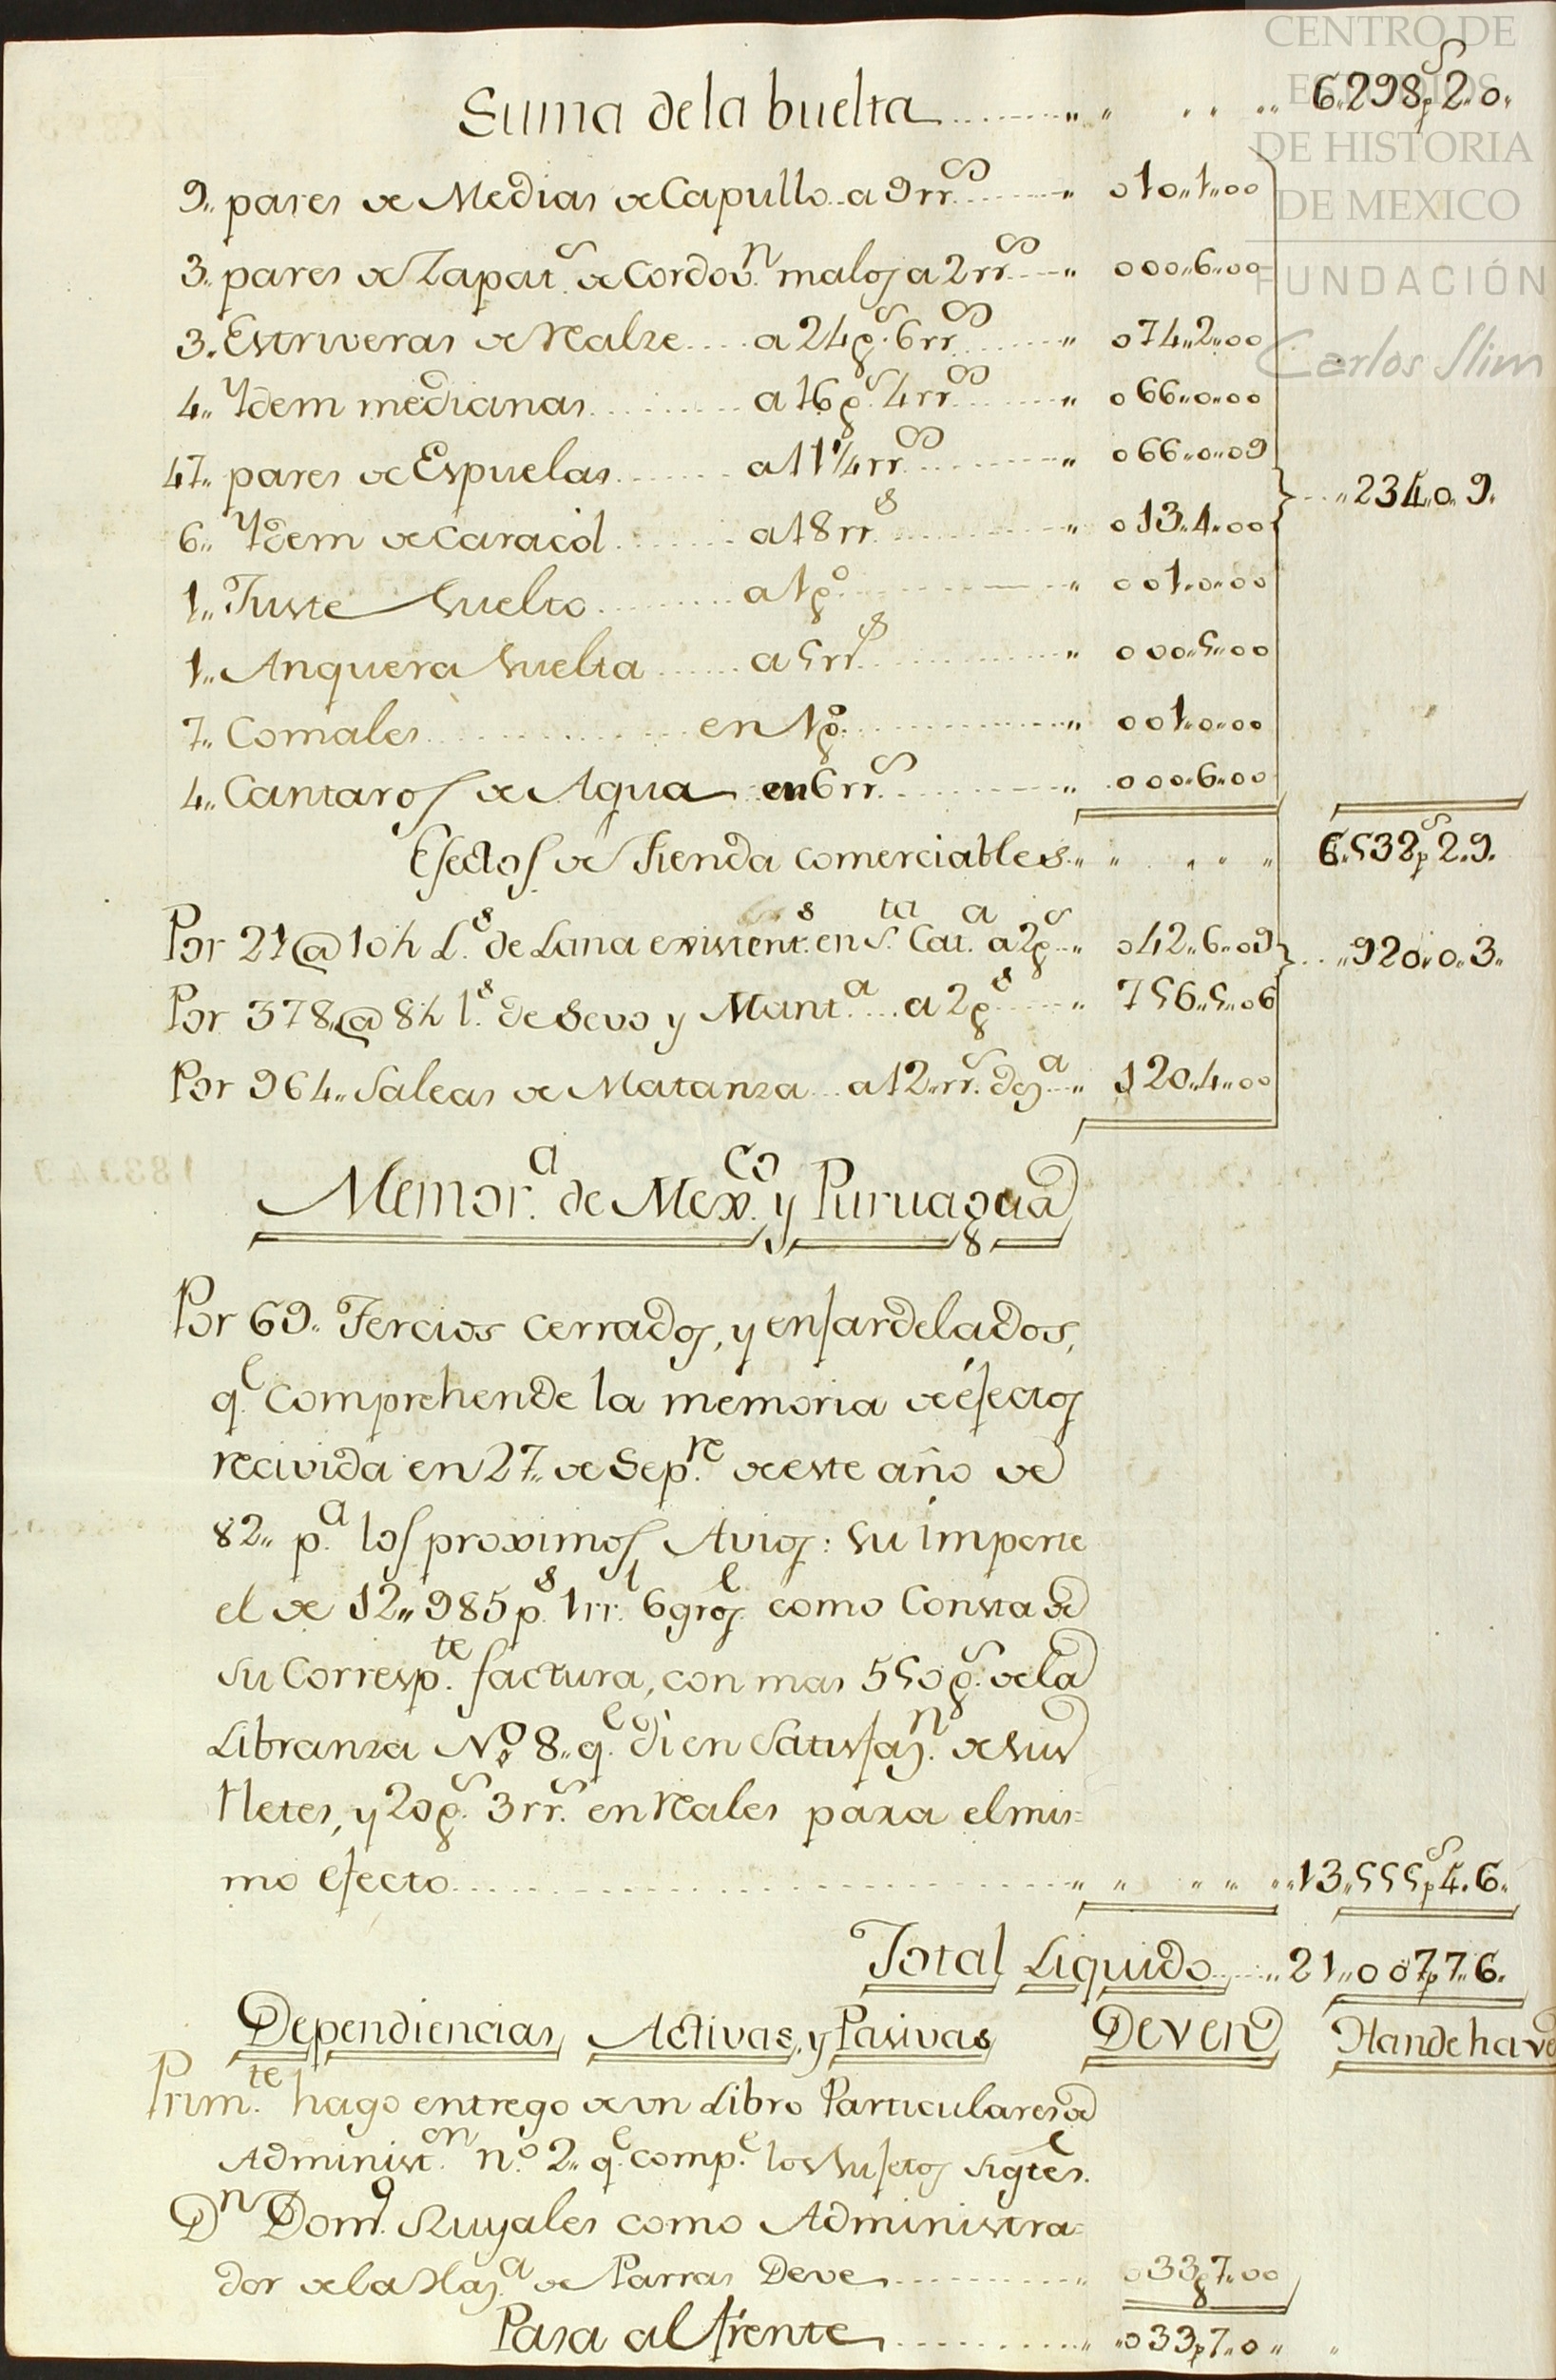 CENTRO DE
ESTUDIOS
DE HISTORIA
DE MEXICO
FUNDACIÓN
Carlos Slim
Suma de la buelta 6,,298ps2,,0,,
9,, pares de Medias de Capullo a 9rrs 010,,1,,00
3,, pares de Zapats de Cordovn malos a 2rrs 000,,6,,00
3,, Estriveras de Realze a 24ps 6rrs 074,,2,,00
4,, Ydem medianas a 16ps 4rrs 066,,0,,00
47,, pares de Espuelas a 11 1/4 rrs 066,,0,,09
6,, Ydem de Caracol a 18rrs 013,,4,,00 ,,234,,0,,9,,
1,, Fuste suelto a 1po 001,,0,,00
1,, Anquera suelta a 5rrs 000,,5,,00
7,, Comales en 1po 001,,0,,00
4,, Cantaros de Agua en 6rrs 000,,6,,00
Efectos de Tienda comerciables 6,,532ps2,,9,,
Por 21@10h Ls de Lana existents en Sta Cata a 2ps 042,,6,,09 ,,920,,0,,3,,
Por 378,,@8h ls de Sevo y Manta a 2ps 756,,5,,06
Por 964,, Saleas de Matanza a 12,,rrs dosa 120,,4,,00
Memora de Mexco y Puruagua
Por 69,, Tercios cerrados, y enfardelados,
qe comprehende la memoria de éfectos
recivida en 27,, de Sepre de este año de
82,, pa los proximos Avios: su importe
el de 12,,985ps 1rrl 6gros como Consta de
su Correspte factura, con mas 550ps de la
Libranza No 8,, qe di en Satisfazn de sus
fletes, y 20ps 3rrs en reales para el mis=
mo efecto ,,13,,555ps4,,6,,
Total Liquido ,,21,,007p7,,6,,
Dependiencias Activas, y Pasivas Deven Han de hav
Primte hago entrego de un Libro Particulares de
Administon no 2,, qe compe los sujetos sigtes.
Dn Domo Ruyales como Administra=
dor de la Haza de Parras Deve 033p7,,00
Pasa al frente ,,033p7,,0,,